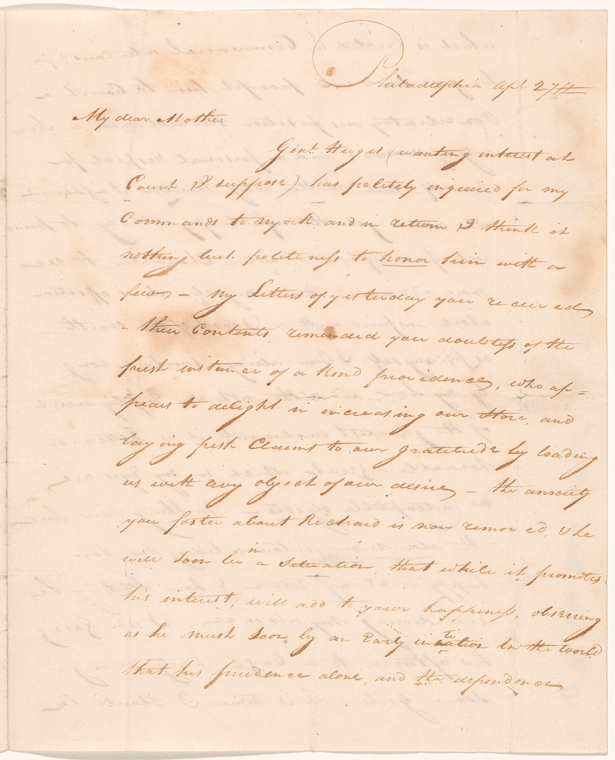 Philadelphia Apl 27th
My dear Mother
Genl. Huger (wanting interest at
Court, I suppose) has politely inquired for my
Commands to nyork and in return I think it
nothing but politeness to honor him with a
few – my Letters of yesterday you received
their Contents, reminded you doubtless of the
fresh instance of a Kind providence, who ap=
pears to delight in increasing our Store, and
laying fresh Claims to our gratitude by loading
us with every object of our desire – the anxiety
you foster about Richard is now removed, & he
will soon be in a situation, that while it promotes
his interest, will add to your happiness, observing
as he must soon, by an Early in the World
that his prudence alone, and the dependence